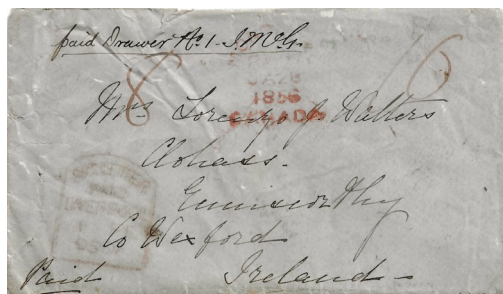 paid Drawer No. 1 - J. McG.
8
6
JA 28
1856
CANADA
Mrs Lorenzo J. Watters
Clohass -
Enniscorthy
Co Wexford
Paid
Ireland -